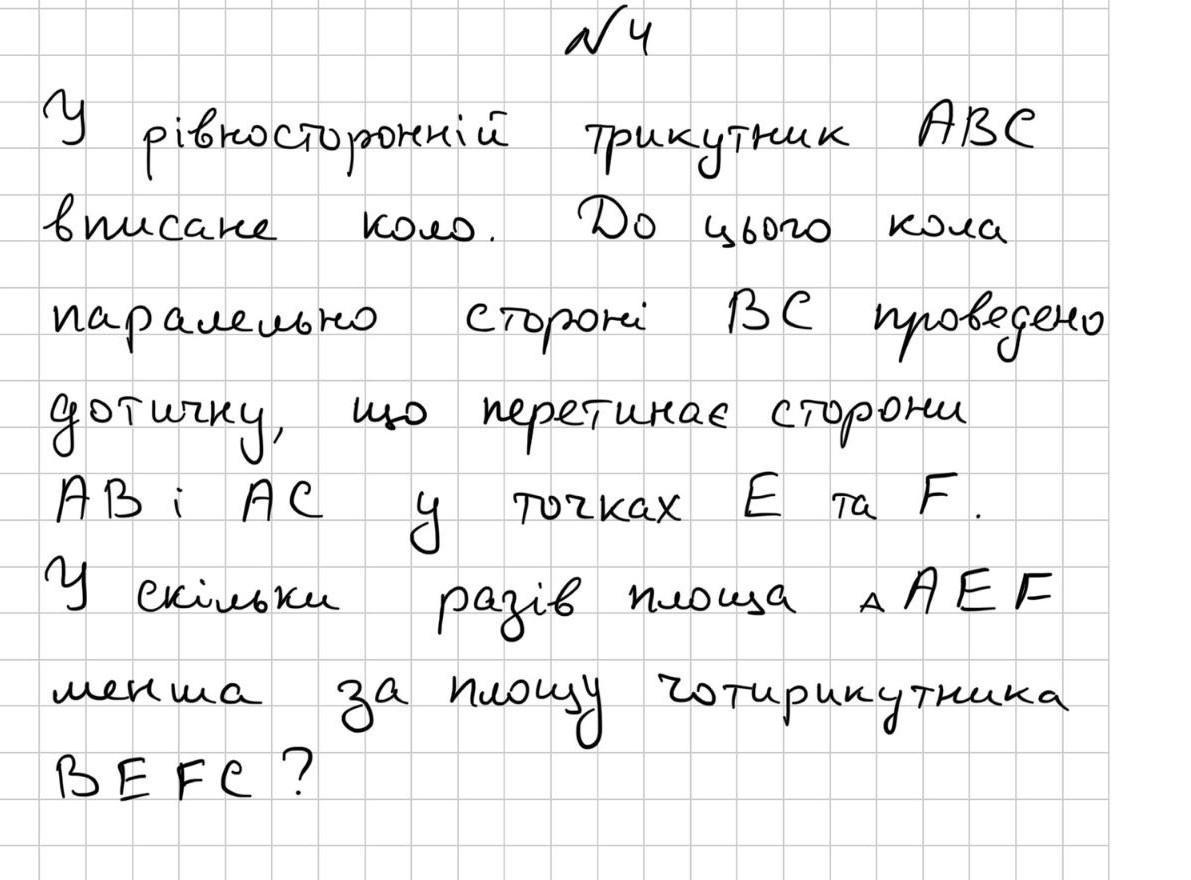 №4
У рівносторонній трикутник ABC
вписане коло. До цього кола
паралельно стороні BC проведено
дотичку, що перетинає сторони
AB і AC у точках E та F.
У скільки разів площа △AEF
менша за площу чотирикутника
BEFC?